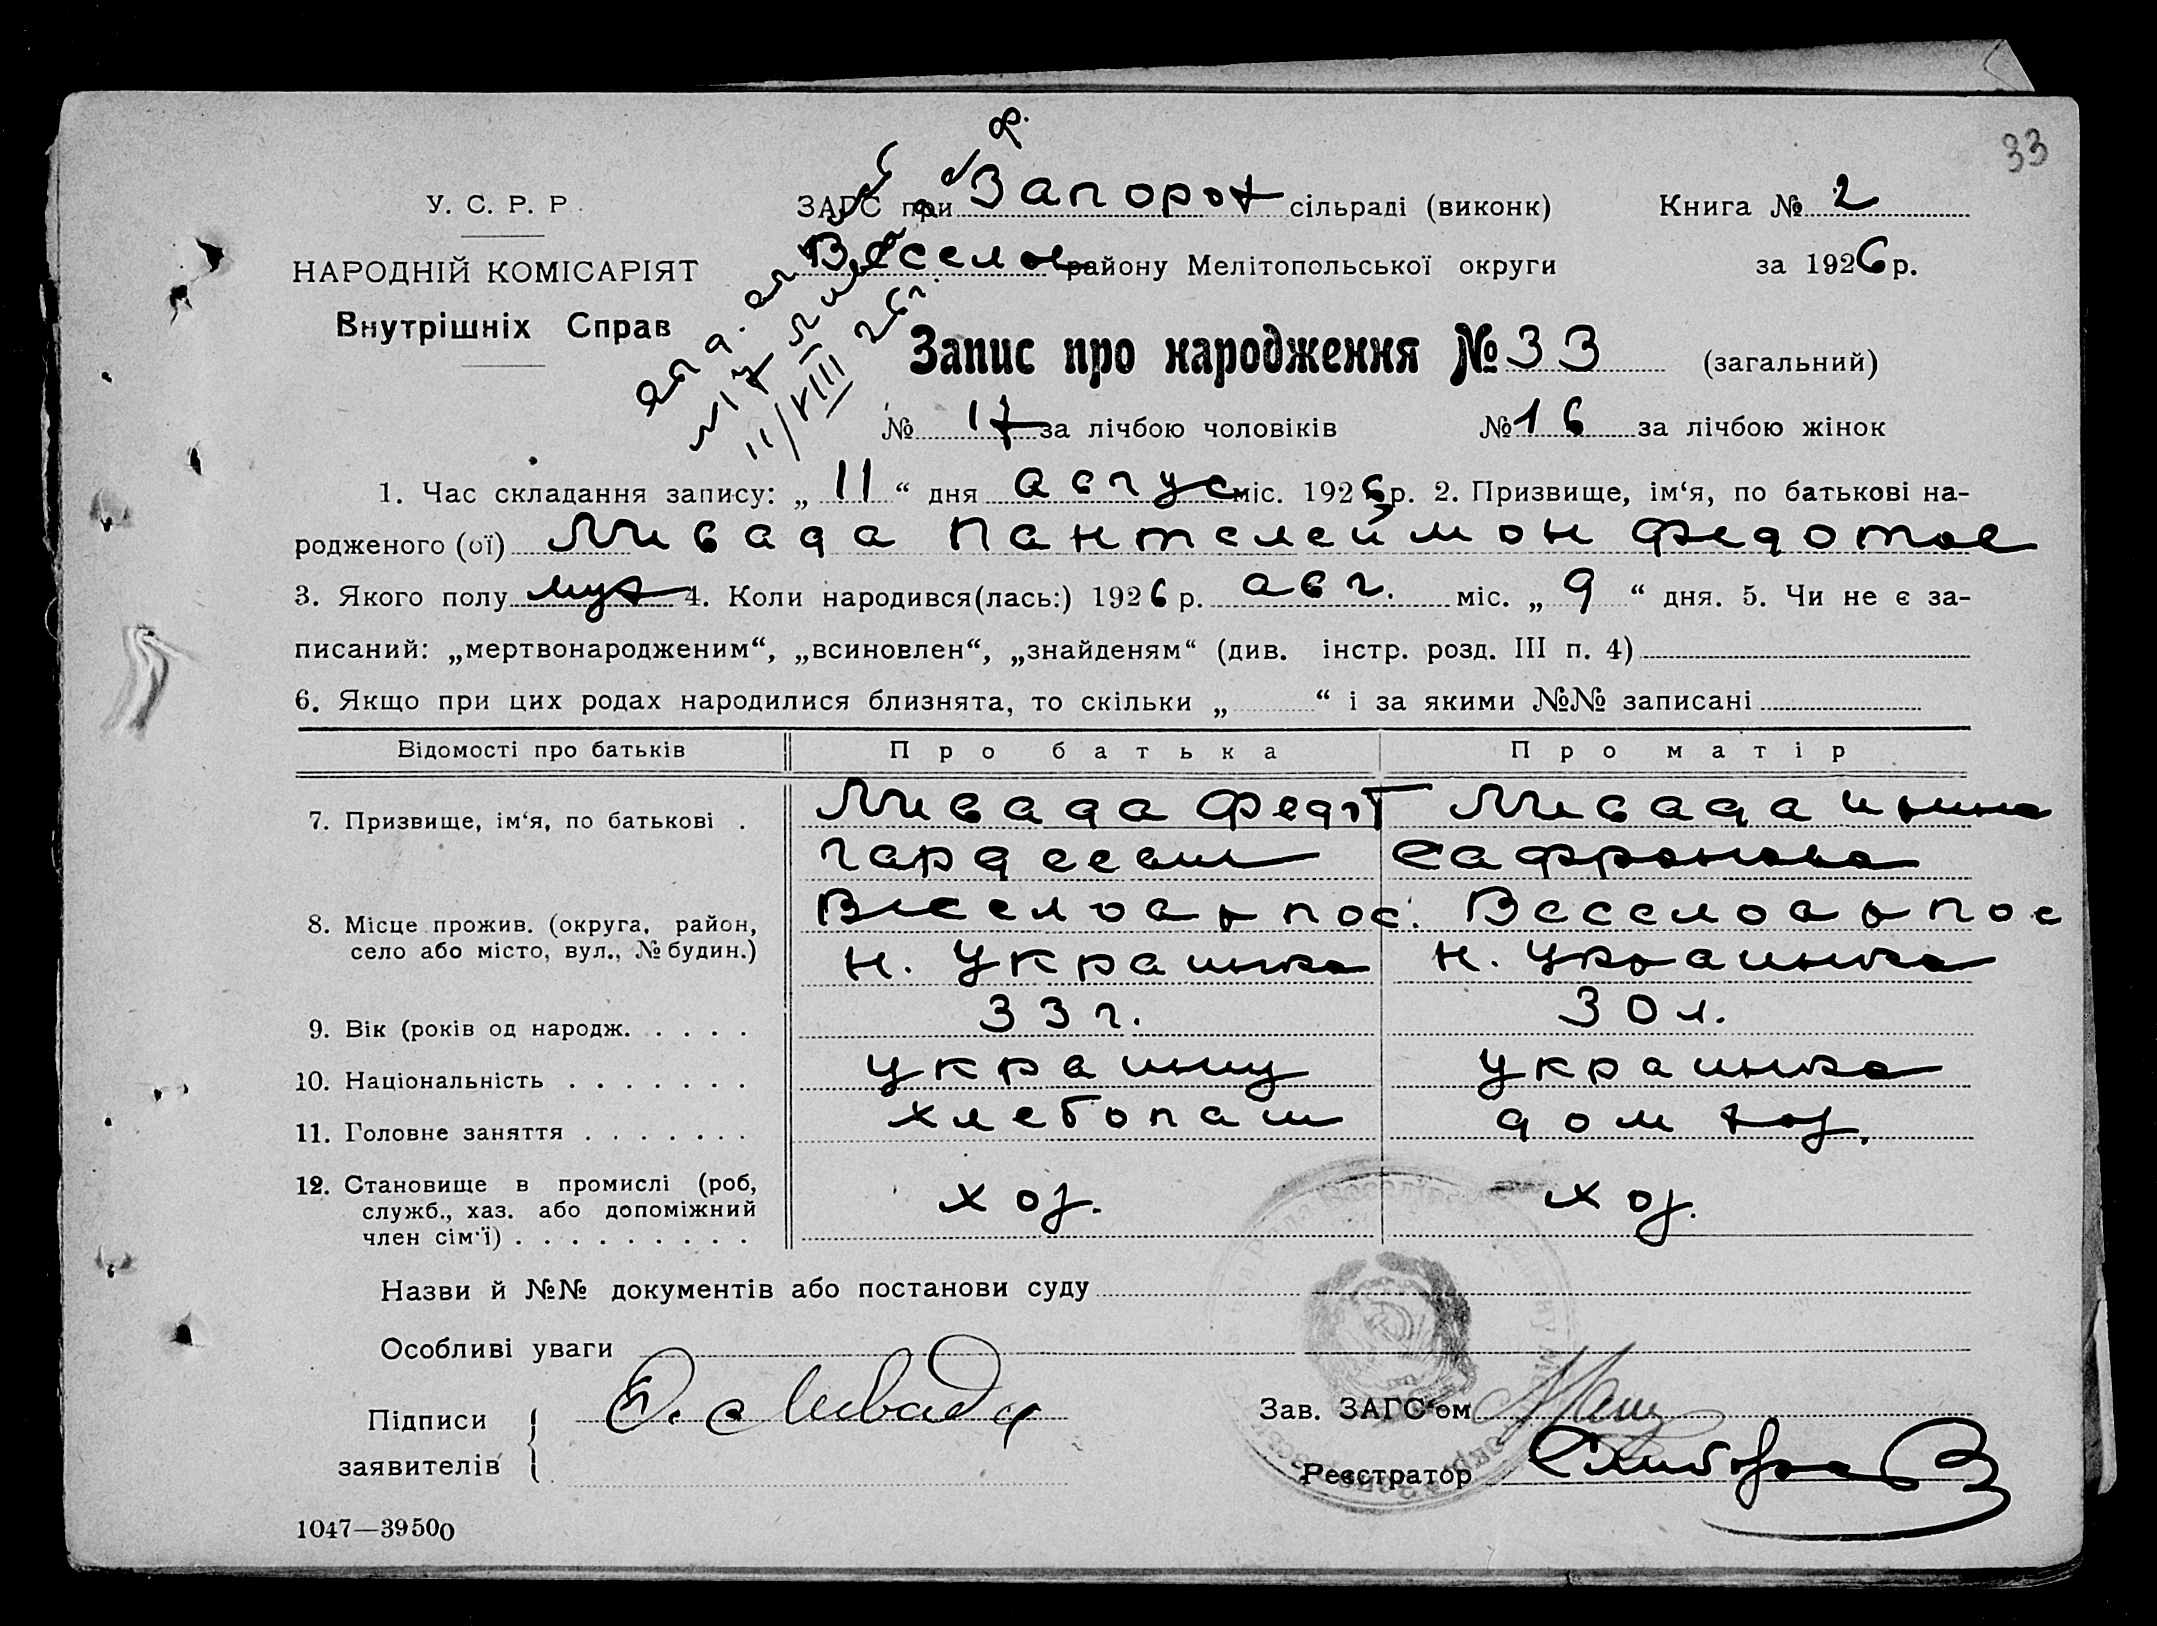 33
У. С. Р. Р.
НАРОДНІЙ КОМІСАРІЯТ
Внутрішніх Справ
ЗАГС при Запорож сільраді (виконк)
Весело району Мелітопольської округи
Книга № 2
за 1926 р.
Запис про народження № 33 (загальний)
№ 17 за лічбою чоловіків № 16 за лічбою жінок
11/VIII 26 г.
1. Час складання запису: „ 11 “ дня Авгус міс. 1926 р. 2. Призвище, ім‘я, по батькові на-
родженого (ої) Ливада Пантелеймон Федотов
3. Якого полу муж 4. Коли народився(лась:) 1926 р. авг. міс. „ 9 “ дня. 5. Чи не є за-
писаний: „мертвонародженим“, „всиновлен“, „знайденям“ (див. інстр. розд. III п. 4)
6. Якщо при цих родах народилися близнята, то скільки „ “ і за якими №№ записані
Відомості про батьків Про батька Про матір
7. Призвище, ім‘я, по батькові . Ливада Федот Ливада Ирина
Сафронова
8. Місце прожив. (округа, район, село або місто, вул., № будин.) Весело р пос. Весело р пос
Н. Украинка Н. Украинка
9. Вік (років од народж. . . . . 33 г. 30 л.
10. Національність . . . . . . . украинц украинка
11. Головне заняття . . . . . . . хлебопаш дом хоз.
12. Становище в промислі (роб,
служб., хаз. або допоміжний
член сім‘ї) . . . . . . . . . хоз. хоз.
Назви й №№ документів або постанови суду
Особливі уваги
Підписи
заявителів
Ливада
Зав. ЗАГС‘ом
Реєстратор
1047—39500